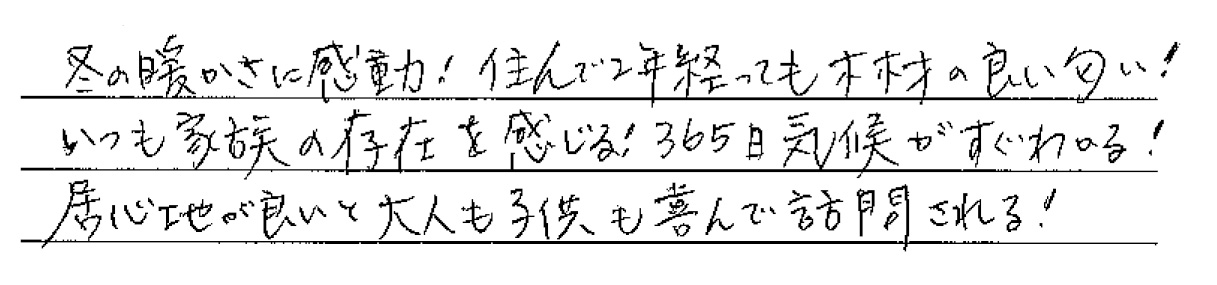 冬の暖かさに感動！住んで2年経っても木材の良い匂い！
いつも家族の存在を感じる！365日気候がすぐわかる！
居心地が良いと大人も子供も喜んで訪問される！